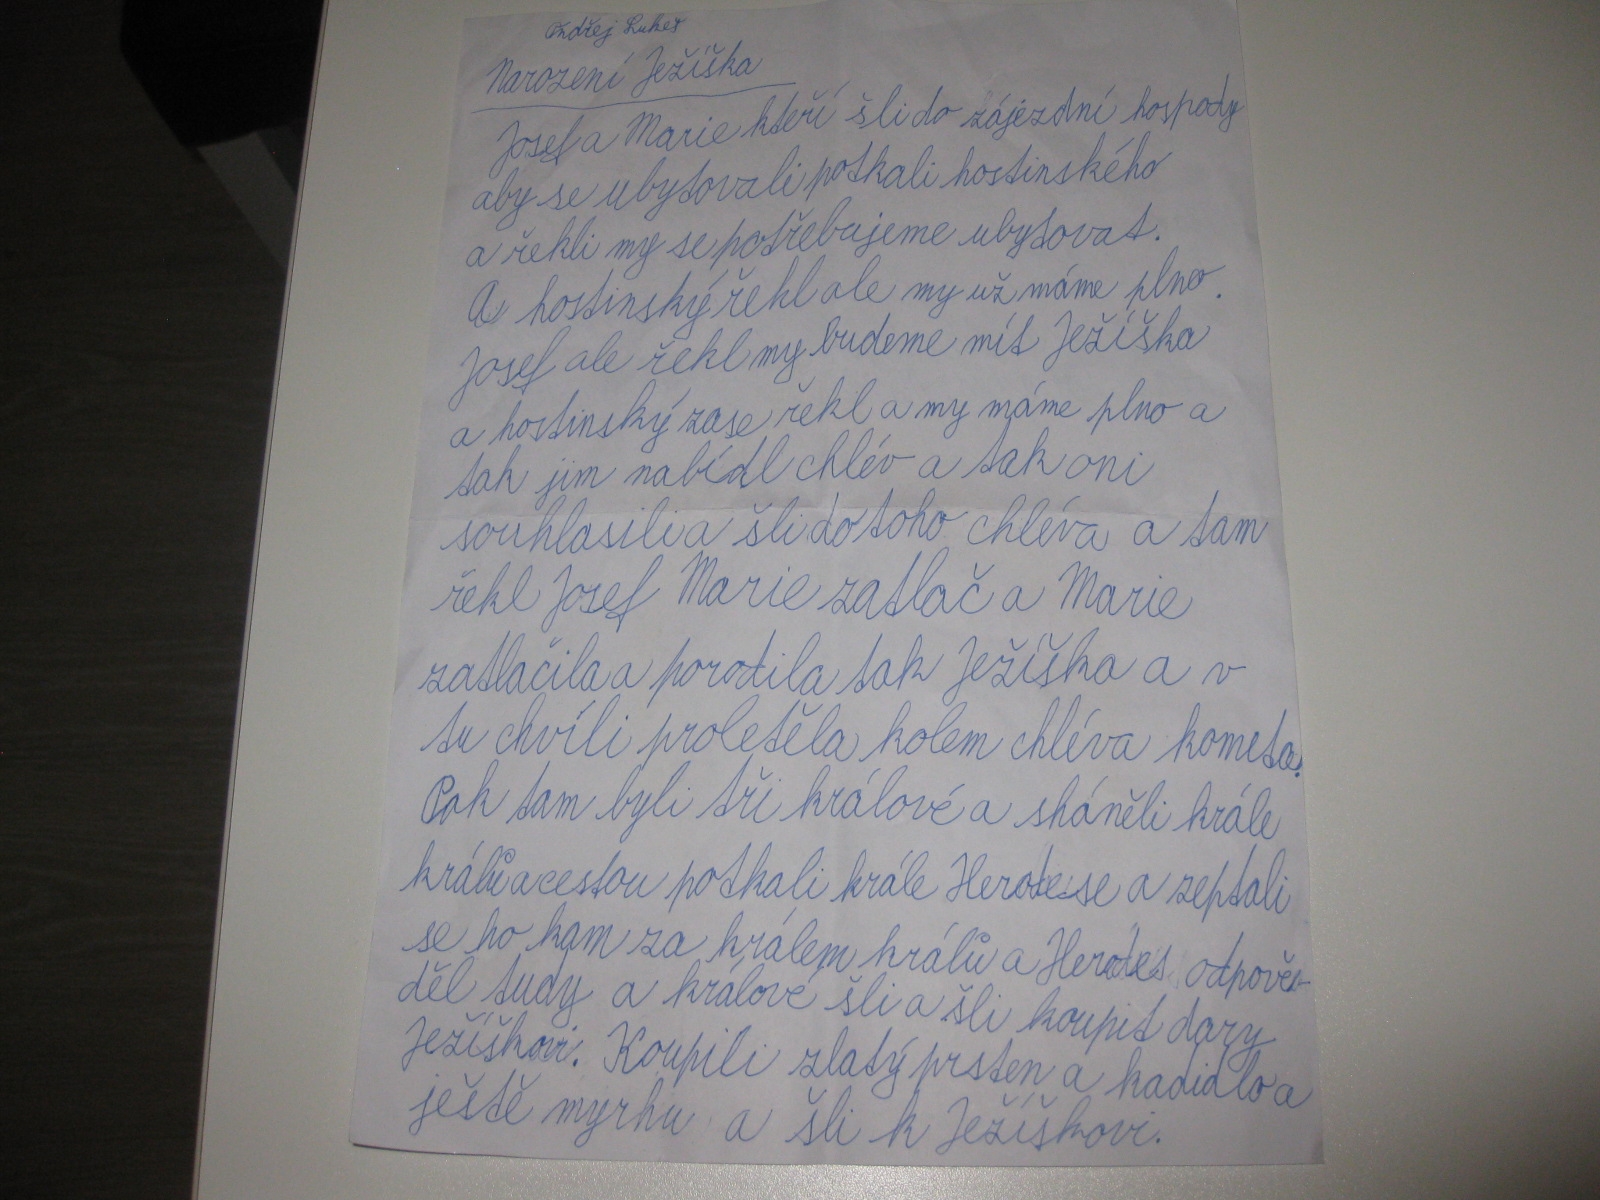 Ondřej Lukeš
Narození Ježíška
Josef a Marie kteří šli do zájezdní hospody
aby se ubytovali potkali hostinského
a řekli my se potřebujeme ubytovat.
A hostinský řekl ale my už máme plno.
Josef ale řekl my budeme mít Ježíška
a hostinský zase řekl a my máme plno a
tak jim nabídl chlév a tak oni
souhlasili a šli do toho chléva a tam
řekl Josef Marie zatlač a Marie
zatlačila a porodila tak Ježíška a v
tu chvíli proletěla kolem chléva kometa.
Pak tam byli tři králové a sháněli krále
králů a cestou potkali krále Herodese a zeptali
se ho kam za králem králů a Herodes odpově-
děl tudy a králové šli a šli koupit dary
Ježíškovi. Koupili zlatý prsten a kadidlo a
ještě myrhu a šli k Ježíškovi.